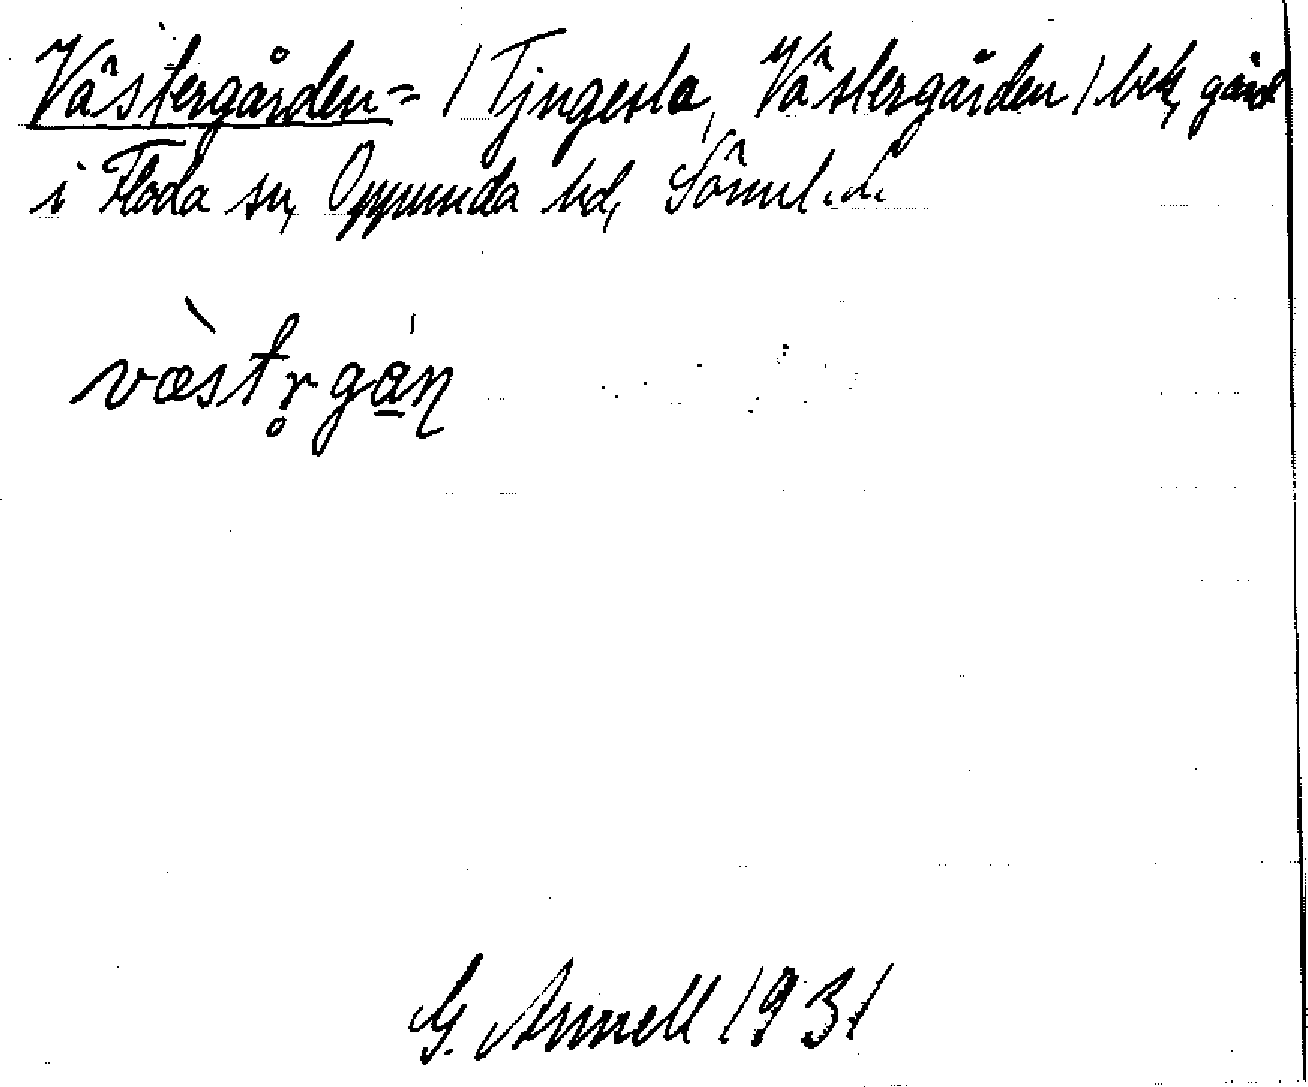 Västergården = / Tjugesta, Västergården / bek, gård
i Floda sn, Oppunda hd, Sörml. l.
væ̀str̥gạ̊n
G. Annell 1931